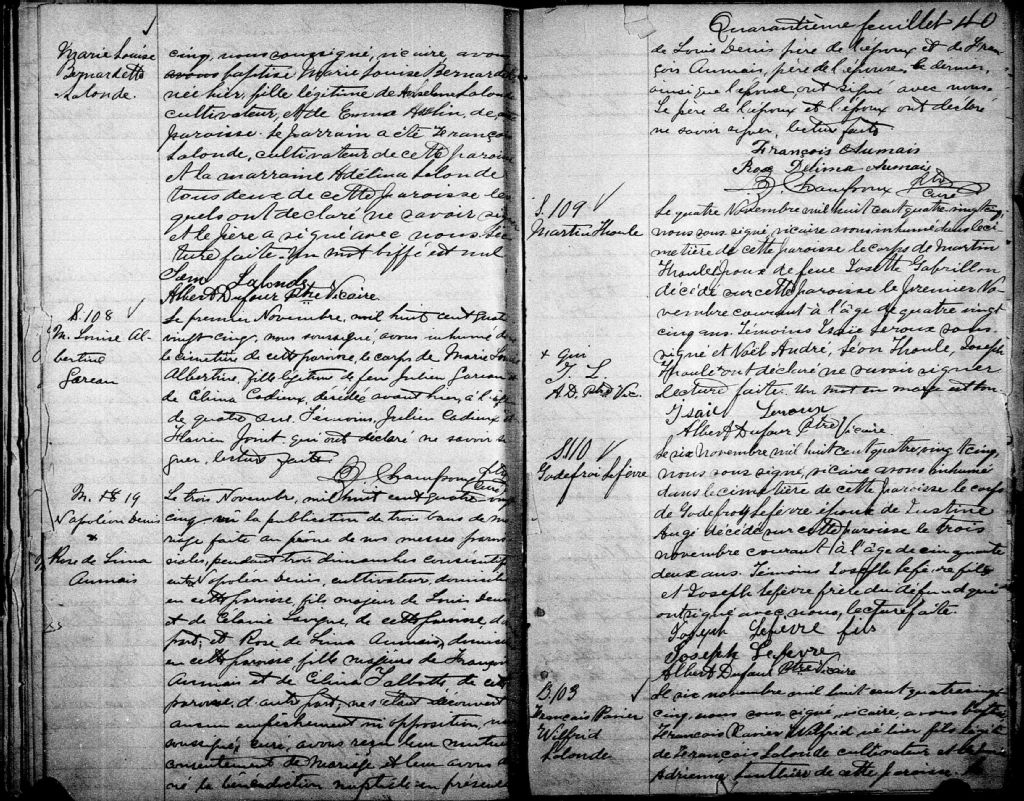 Marie Louise
Bernadette
Lalonde.
cinq, nous soussigné, vicaire, avons
avons baptisé Marie Louise Bernadette
née hier, fille légitime de Anselme Lalonde
cultivateur, et de Emma
paroisse. Le parrain a été François
Lalonde, cultivateur de cette paroisse
et la marraine Adélina Lalonde
tous deux de cette paroisse les
quels ont déclaré ne savoir si
et le père a signé avec nous. Lec
ture faite. Un mot biffé est nul
Sam Lalonde
Albert Dufour Ptre Vicaire
S. 108
M. Louise Al-
bertine
Gareau
Le premier Novembre, mil huit cent quatre
vingt cinq, nous soussigné, avons inhumé dans
le cimetière de cette paroisse, le corps de Marie Louise
Albertine, fille légitime de feu Julien Gareau
de Clina Cadieux, décédée avant hier, à l'âge
de quatre ans. Témoins, Julien Cadieux &
qui ont déclaré ne savoir si
gner, lecture faite.
Ptre
Curé
M. 19
Napoléon Denis
&
Rose de Lima
Aumais
Le trois Novembre, mil huit cent quatre vingt
cinq, vu la publication de trois bans de ma
riage faite au prône de nos messes parois
siales, pendant trois dimanches consécutifs
entre Napoléon Denis, cultivateur, domicilié
en cette paroisse, fils majeur de Louis Denis
et de Clanie de cette paroisse, d'une
part; et Rose de Lima Aumais, domiciliée
en cette paroisse fille majeure de François
Aumais et de Clina de cette
paroisse, d'autre part; ne s'étant découvert
aucun empêchement ni opposition, nous
soussigné, curé, avons reçu leur mutuel
consentement de Mariage, et leur avons don
né la bénédiction nuptiale en présence
Quarantième feuillet 40
de Louis Denis père de l'époux et de Fran
çois Aumais, père de l'épouse, le dernier,
ainsi que l'épouse, ont signé avec nous.
Le père de l'époux et l'époux ont déclaré
ne savoir signer, lecture faite
François Aumais
Rose Délima Aumais
Ptre
Curé
S. 109
Martin Houle
Le quatre Novembre mil huit cent quatre vingt cinq,
nous sous signé, vicaire avons inhumé dans le ci
metière de cette paroisse le corps de Martin
Houle époux de feue Josette Gabrillon
décédé sur cette paroisse le premier No
vembre courant à l'âge de quatre vingt
cinq ans. Témoins Isaïe Leroux sous
signé et Noël André, Léon Houle, Joseph
Houle + ont déclaré ne savoir signer
Lecture faite. Un mot en marge est bon
+ qui
I. L.
A.D. Ptre Vic.
Isaïe Leroux
Albert Dufour Ptre Vicaire
S. 110
Godefroi Lefèvre
Le six Novembre mil huit cent quatre vingt cinq,
nous sous signé, vicaire avons inhumé
dans le cimetière de cette paroisse le corps
de Godefroy Lefevre époux de Justine
Augé décédé sur cette paroisse le trois
novembre courant à l'âge de cinquante
deux ans. Témoins Joseph Lefevre fils
et Joseph Lefèvre frère du défunt qui
ont signé avec nous, lecture faite
Joseph Lefèvre fils
Joseph Lefevre
Albert Dufour Ptre Vicaire
B. 103
François Xavier
Wilfrid
Lalonde
Le six novembre mil huit cent quatre vingt
cinq, nous sous signé, vicaire, avons baptisé
François Xavier Wilfrid né hier fils légit
de François Lalonde cultivateur et de
Adrienne Gauthier de cette paroisse. Le